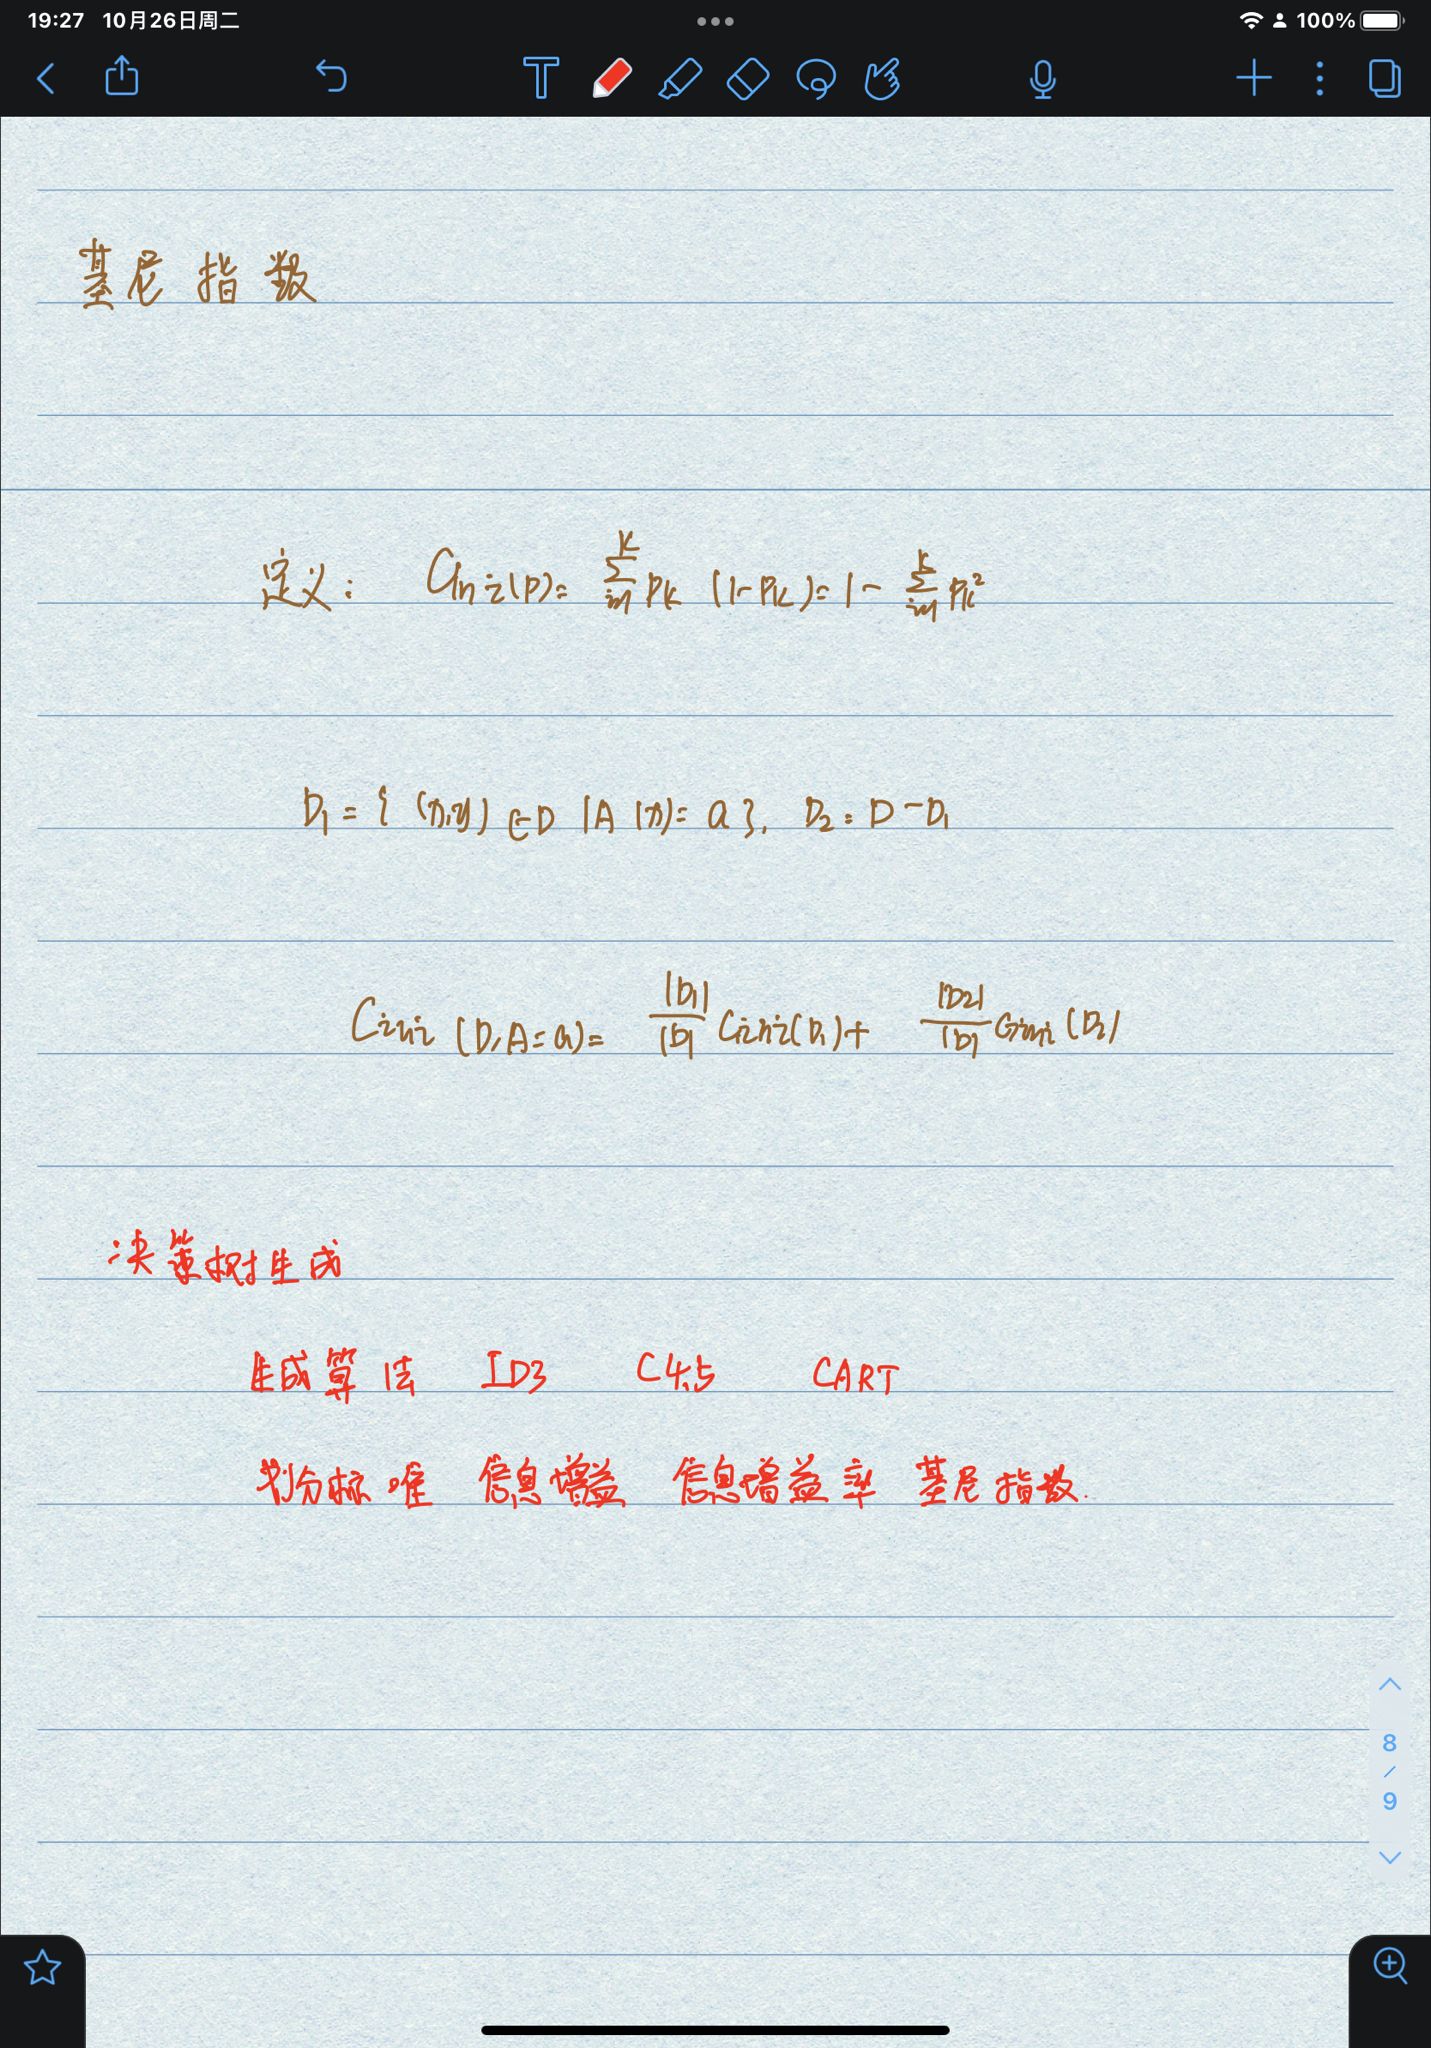 19:27 10月26日周二 100%
基尼指数
定义: Gini(p)= Σ_{i=1}^{K} Pk (1-Pk)=1- Σ_{i=1}^{K} Pk²
D₁={(x,y)∈D|A(x)=a}, D₂=D-D₁
Gini(D,A=a)= |D₁|/|D| Gini(D₁)+ |D2|/|D| Gini(D₂)
决策树生成
生成算法 ID3 C4.5 CART
划分标准 信息增益 信息增益率 基尼指数.
8
/
9